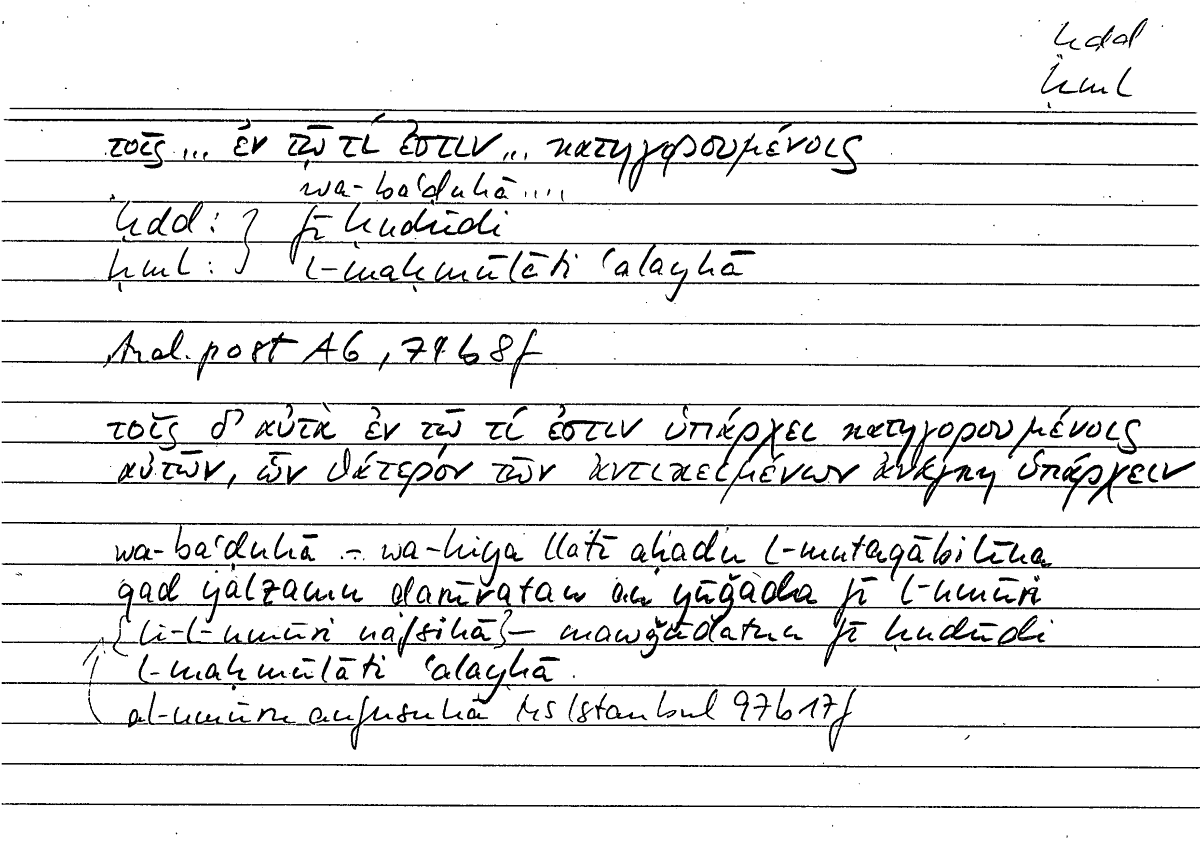 ḥdd
ḥml
τοῖς ... ἐν τῷ τί ἐστιν ... κατηγορουμένοις
wa-baʿḍuhā ....
ḥdd : } fī ḥudūdi
ḥml : } l-maḥmūlāti ʿalayhā
Anal. post A6, 74b8f
τοῖς δ' αὐτὰ ἐν τῷ τί ἐστιν ὑπάρχει κατηγορουμένοις
αὐτῶν, ὧν θάτερον τῶν ἀντικειμένων ἀνάγκη ὑπάρχειν
wa-baʿḍuhā – wa-hiya llatī aḥadu l-mutaqābilīna
qad yalzamu ḍarūratan an yūǧada fī l-umūri
{li-l-umūri nafsihā} – mawǧūdatun fī ḥudūdi
l-maḥmūlāti ʿalayhā.
al-umūru anfusuhā Ms Istanbul 97b17f